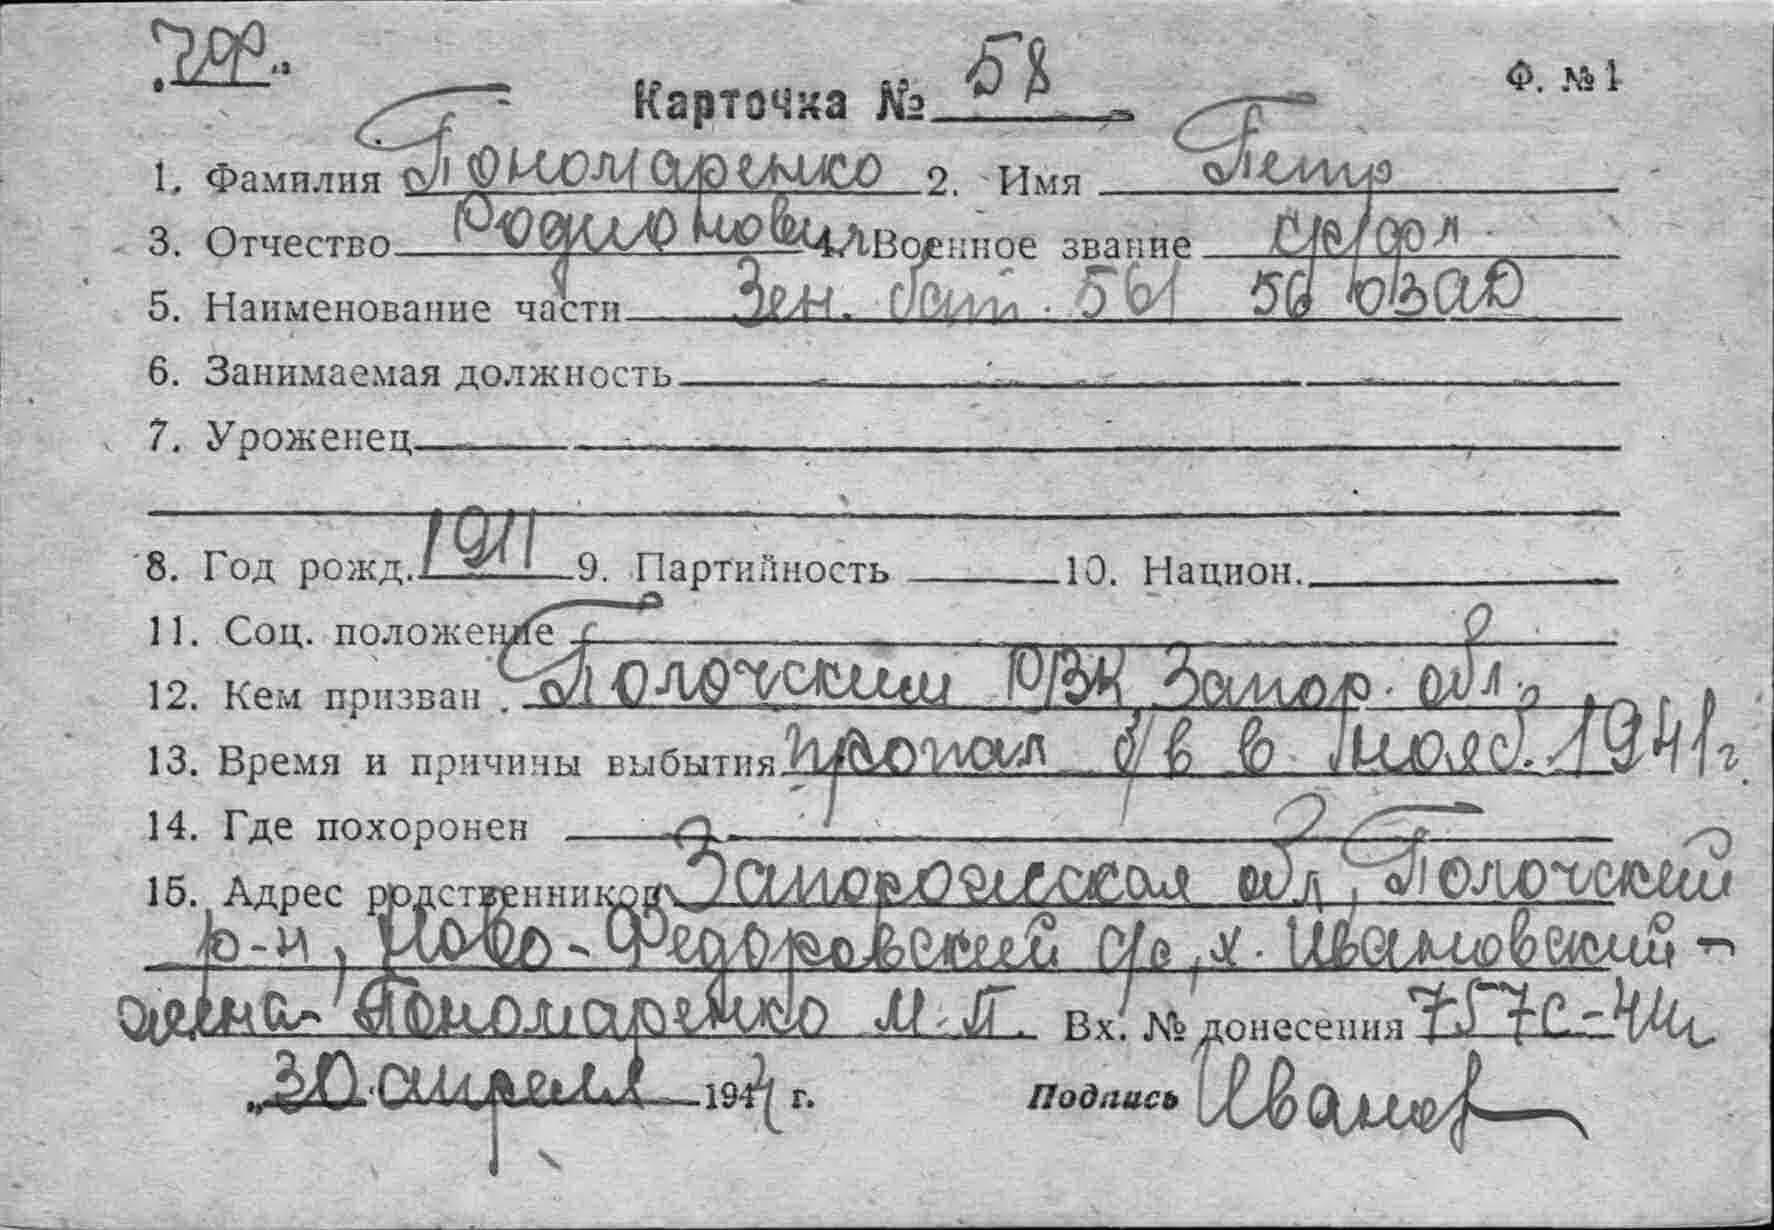 ЧФ
Карточка № 58 Ф. № 1
1. Фамилия Пономаренко 2. Имя Петр
3. Отчество Родионович 4. Военное звание кр/фл
5. Наименование части Зен. бат. 561 56 ОЗАД
6. Занимаемая должность
7. Уроженец
8. Год рожд. 1911 9. Партийность 10. Национ.
11. Соц. положение
12. Кем призван Пологским РВК, Запор. обл.
13. Время и причины выбытия пропал б/в в нояб. 1941 г.
14. Где похоронен
15. Адрес родственников Запорожская обл, Пологский
р-н, Ново-Федоровский с/с, х. Ивановский -
жена - Пономаренко М. П. Вх. № донесения 757с-44г
„30 апреля 1944 г. Подпись Иванов